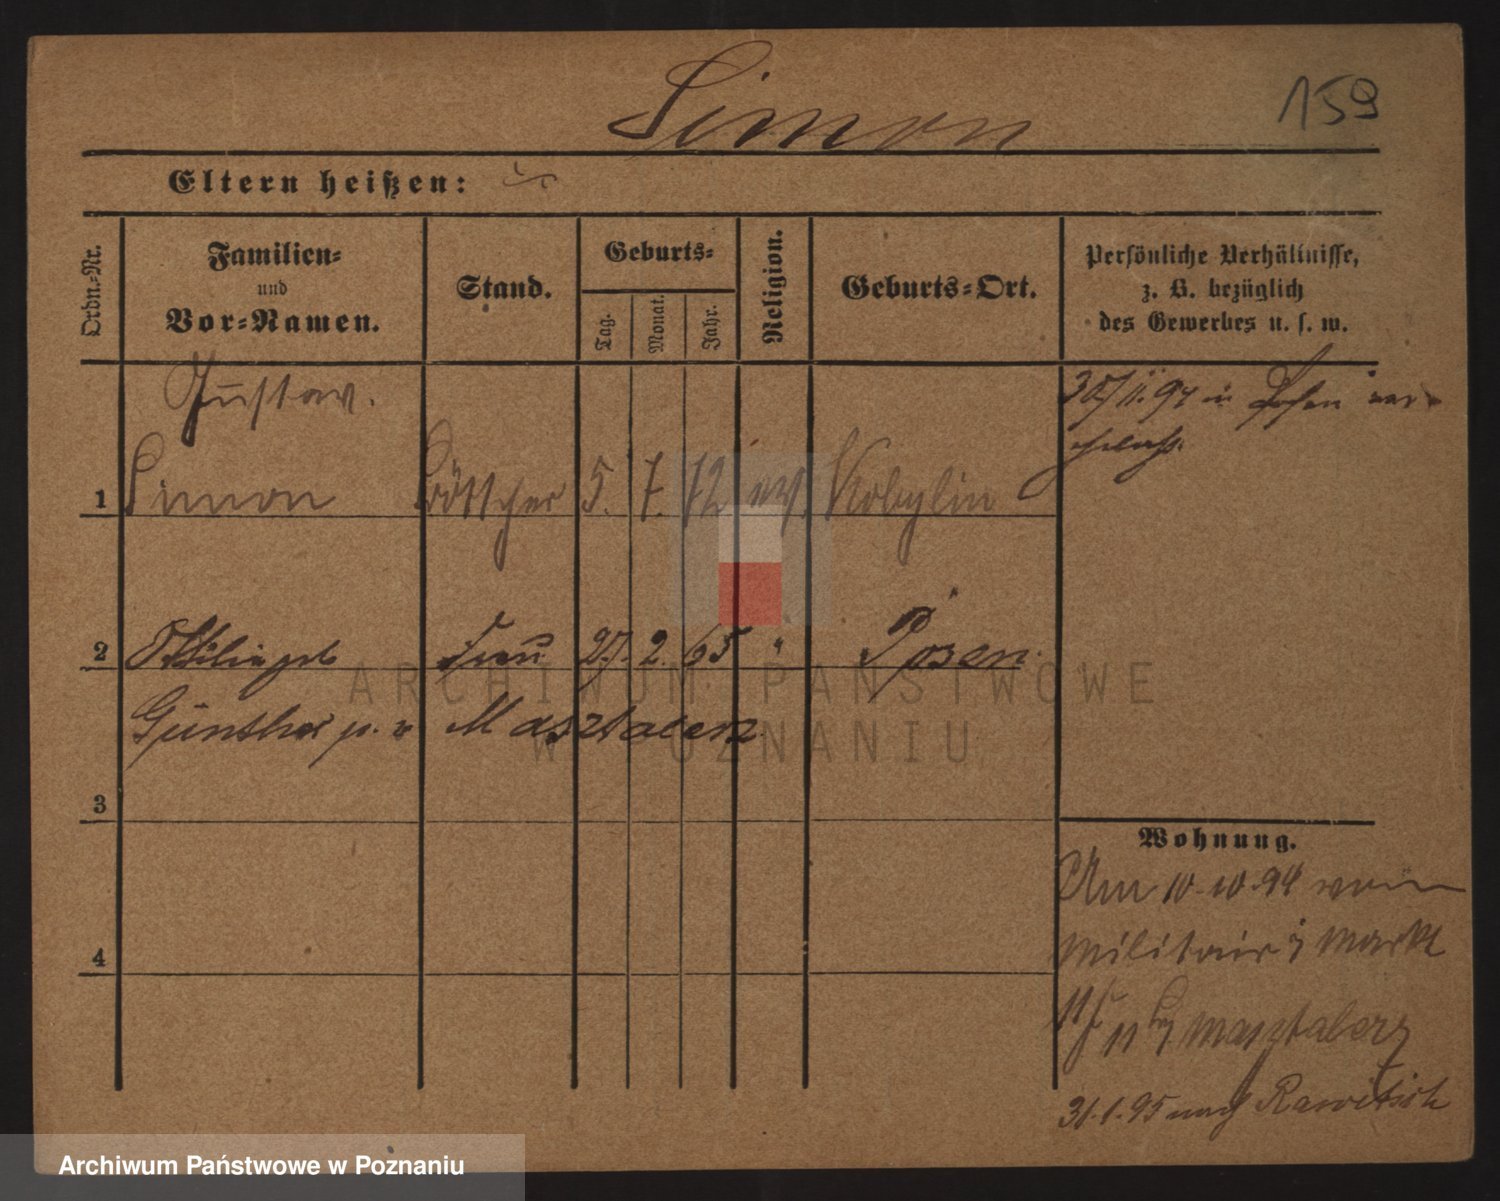 Simon
159
Eltern heißen:
Ordn.-Nr.
Familien-
und
Vor-Namen.
Stand.
Geburts-
Tag.
Monat.
Jahr.
Religion.
Geburts-Ort.
Persönliche Verhältnisse,
z. B. bezüglich
des Gewerbes u. s. w.
Gustav.
30/11.94 in Posen
1 Simon Böttcher 5. 7. 72 ev. Kobylin
2 Ottilie geb Frau 27. 2. 65 " Posen.
Günther Masztalerz
3
Wohnung.
Am 10.10.94 vom
Militair Markt
4
11 Masztalerz
31.1.95 nach Rawitsch
ARCHIWUM PAŃSTWOWE
W POZNANIU
Archiwum Państwowe w Poznaniu